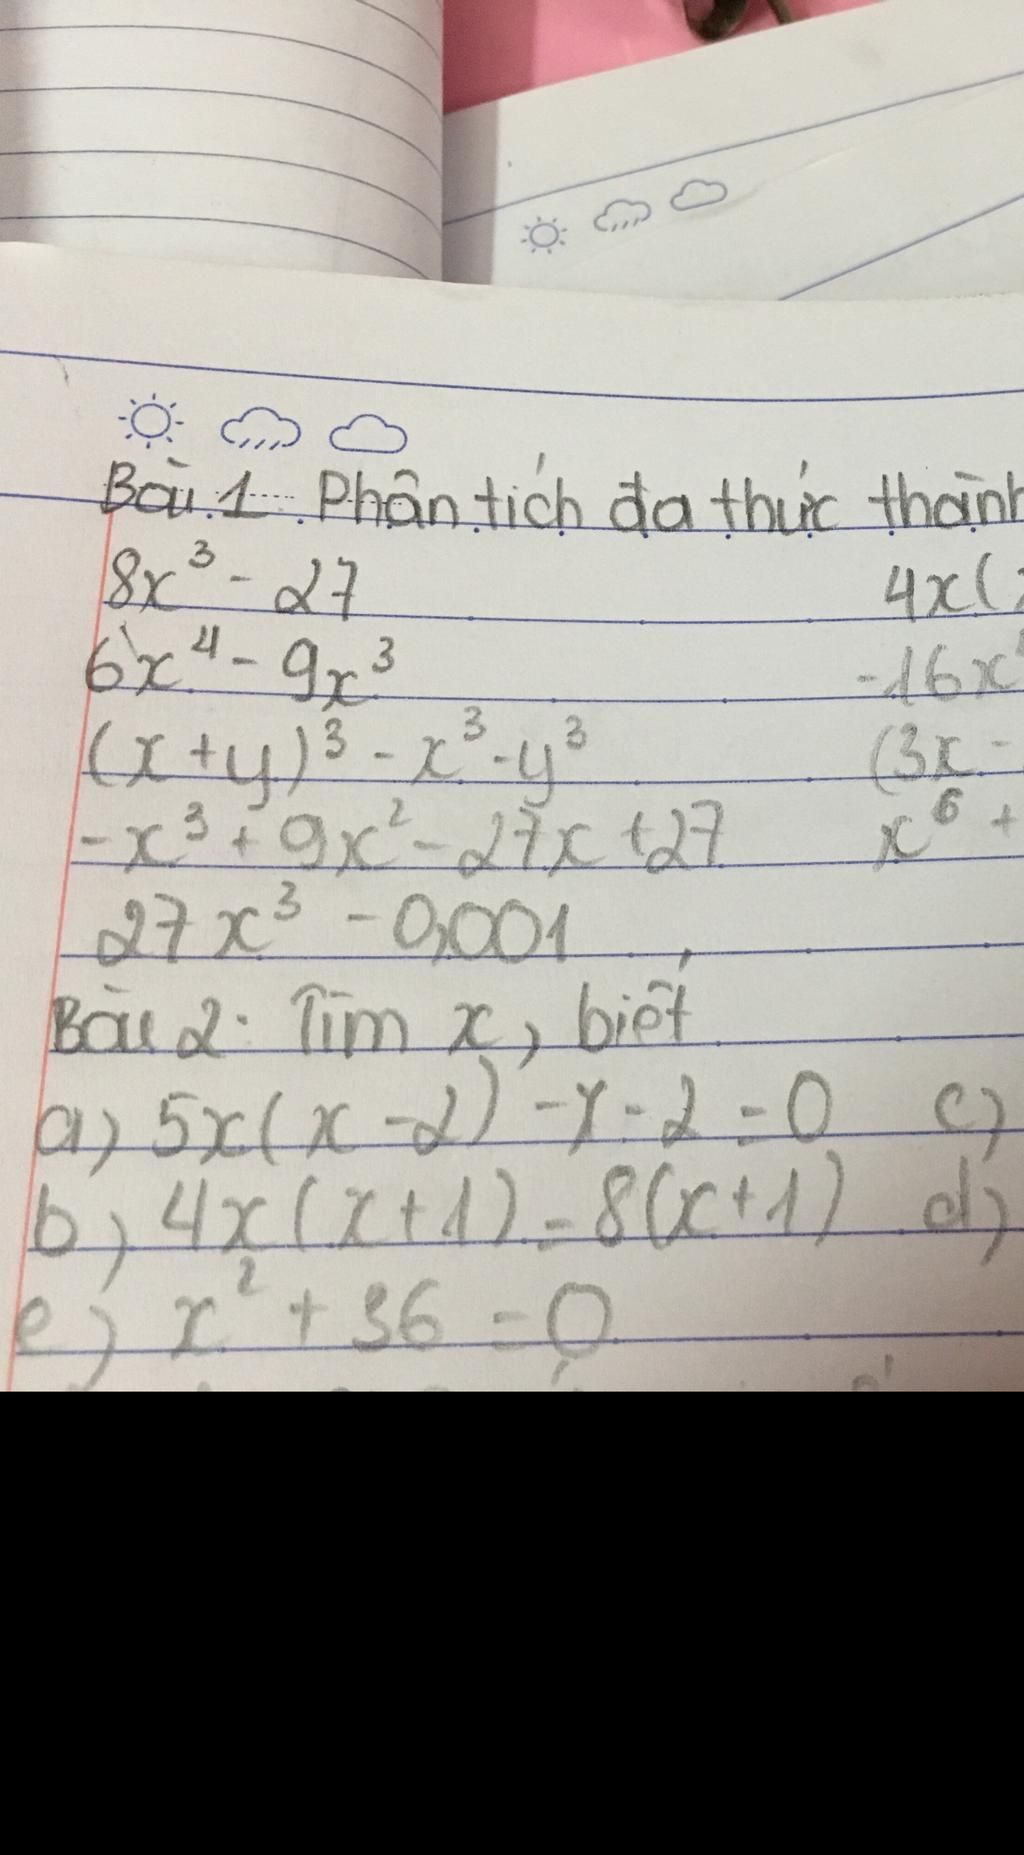 Bài 1: Phân tích đa thức thành
8x³ - 27 4x(
6x⁴ - 9x³ -16x
(x+y)³ - x³ - y³ (3x -
-x³ + 9x² - 27x + 27 x⁶ +
27x³ - 0,001
Bài 2: Tìm x, biết
a) 5x(x - 2) - x - 2 = 0 c)
b) 4x(x+1) = 8(x+1) d)
e) x² + 36 = 0